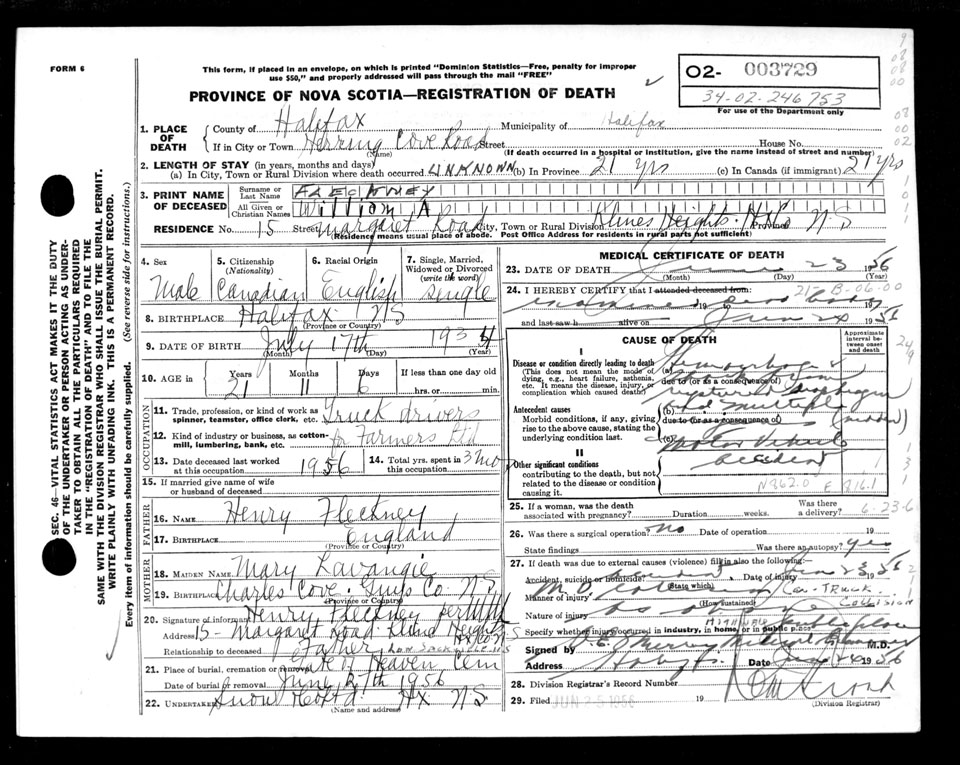 FORM 6
This form, if placed in an envelope, on which is printed "Dominion Statistics—Free, penalty for improper
use $50," and properly addressed will pass through the mail "FREE"
O2- 003729
34-02-246753
For use of the Department only
PROVINCE OF NOVA SCOTIA—REGISTRATION OF DEATH
1. PLACE OF DEATH
County of Halifax Municipality of Halifax
If in City or Town Herring Cove Road Street House No.
(Name) (If death occurred in a hospital or institution, give the name instead of street and number)
2. LENGTH OF STAY (in years, months and days)
(a) In City, Town or Rural Division where death occurred UNKNOWN (b) In Province 21 yrs (c) In Canada (if immigrant) 21 yrs
3. PRINT NAME OF DECEASED
Surname or Last Name FLECKNEY
All Given or Christian Names William A
RESIDENCE No. 15 Street Margaret Road City, Town or Rural Division Heights Province N S
(Residence means usual place of abode. Post Office Address for residents in rural parts not sufficient)
4. Sex
Male
5. Citizenship (Nationality)
Canadian
6. Racial Origin
English
7. Single, Married, Widowed or Divorced (write the word)
Single
8. BIRTHPLACE Halifax NS
(Province or Country)
9. DATE OF BIRTH July 17th 1934
(Month) (Day) (Year)
10. AGE in Years Months Days If less than one day old
21 11 6 hrs. or min.
OCCUPATION
11. Trade, profession, or kind of work as spinner, teamster, office clerk, etc. Truck drivers
12. Kind of industry or business, as cotton-mill, lumbering, bank, etc. Farmers Ltd
13. Date deceased last worked at this occupation 1956
14. Total yrs. spent in this occupation 3 mo
15. If married give name of wife or husband of deceased
FATHER
16. NAME Henry Fleckney
17. BIRTHPLACE England
(Province or Country)
MOTHER
18. MAIDEN NAME Mary
19. BIRTHPLACE Charles Cove Guys Co N.S
(Province or Country)
20. Signature of informant Henry Fleckney per
Address 15 - Margaret Road Heights
Relationship to deceased Father
21. Place of burial, cremation or removal Gate of Heaven Cem
Date of burial or removal June 27th 1956
22. UNDERTAKER Snow Co Ltd Hx NS
(Name and address)
MEDICAL CERTIFICATE OF DEATH
23. DATE OF DEATH June 23 1956
(Month) (Day) (Year)
24. I HEREBY CERTIFY that I attended deceased from:
and last saw h alive on June 24 1956
CAUSE OF DEATH
Approximate interval between onset and death
I
Disease or condition directly leading to death
(This does not mean the mode of dying, e.g., heart failure, asthenia, etc. It means the disease, injury, or complication which caused death)
(a)
due to (or as a consequence of)
Antecedent causes
Morbid conditions, if any, giving rise to the above cause, stating the underlying condition last.
(b)
due to (or as a consequence of)
(c) Motor Vehicle
accident
II
Other significant conditions
contributing to the death, but not related to the disease or condition causing it.
N862.0 E 816.1
25. If a woman, was the death associated with pregnancy? Duration weeks. Was there a delivery?
6-23-6
26. Was there a surgical operation? No Date of operation 19
State findings Was there an autopsy? Yes
27. If death was due to external causes (violence) fill in also the following:
Accident, suicide or homicide? accident Date of injury June 23 1956
(State which)
Manner of injury Car-TRUCK COLLISION
(How sustained)
Nature of injury as above
Specify whether injury occurred in industry, in home, or in public place HIGHWAY public place
Signed by M.D.
Address Halifax Date June 24 1956
28. Division Registrar's Record Number
29. Filed JUN 25 1956 19
(Division Registrar)
SEC. 46—VITAL STATISTICS ACT MAKES IT THE DUTY
OF THE UNDERTAKER OR PERSON ACTING AS UNDER-
TAKER TO OBTAIN ALL THE PARTICULARS REQUIRED
IN THE "REGISTRATION OF DEATH" AND TO FILE THE
SAME WITH THE DIVISION REGISTRAR WHO SHALL ISSUE THE BURIAL PERMIT.
WRITE PLAINLY WITH UNFADING INK. THIS IS A PERMANENT RECORD.
Every item of information should be carefully supplied. (See reverse side for instructions.)